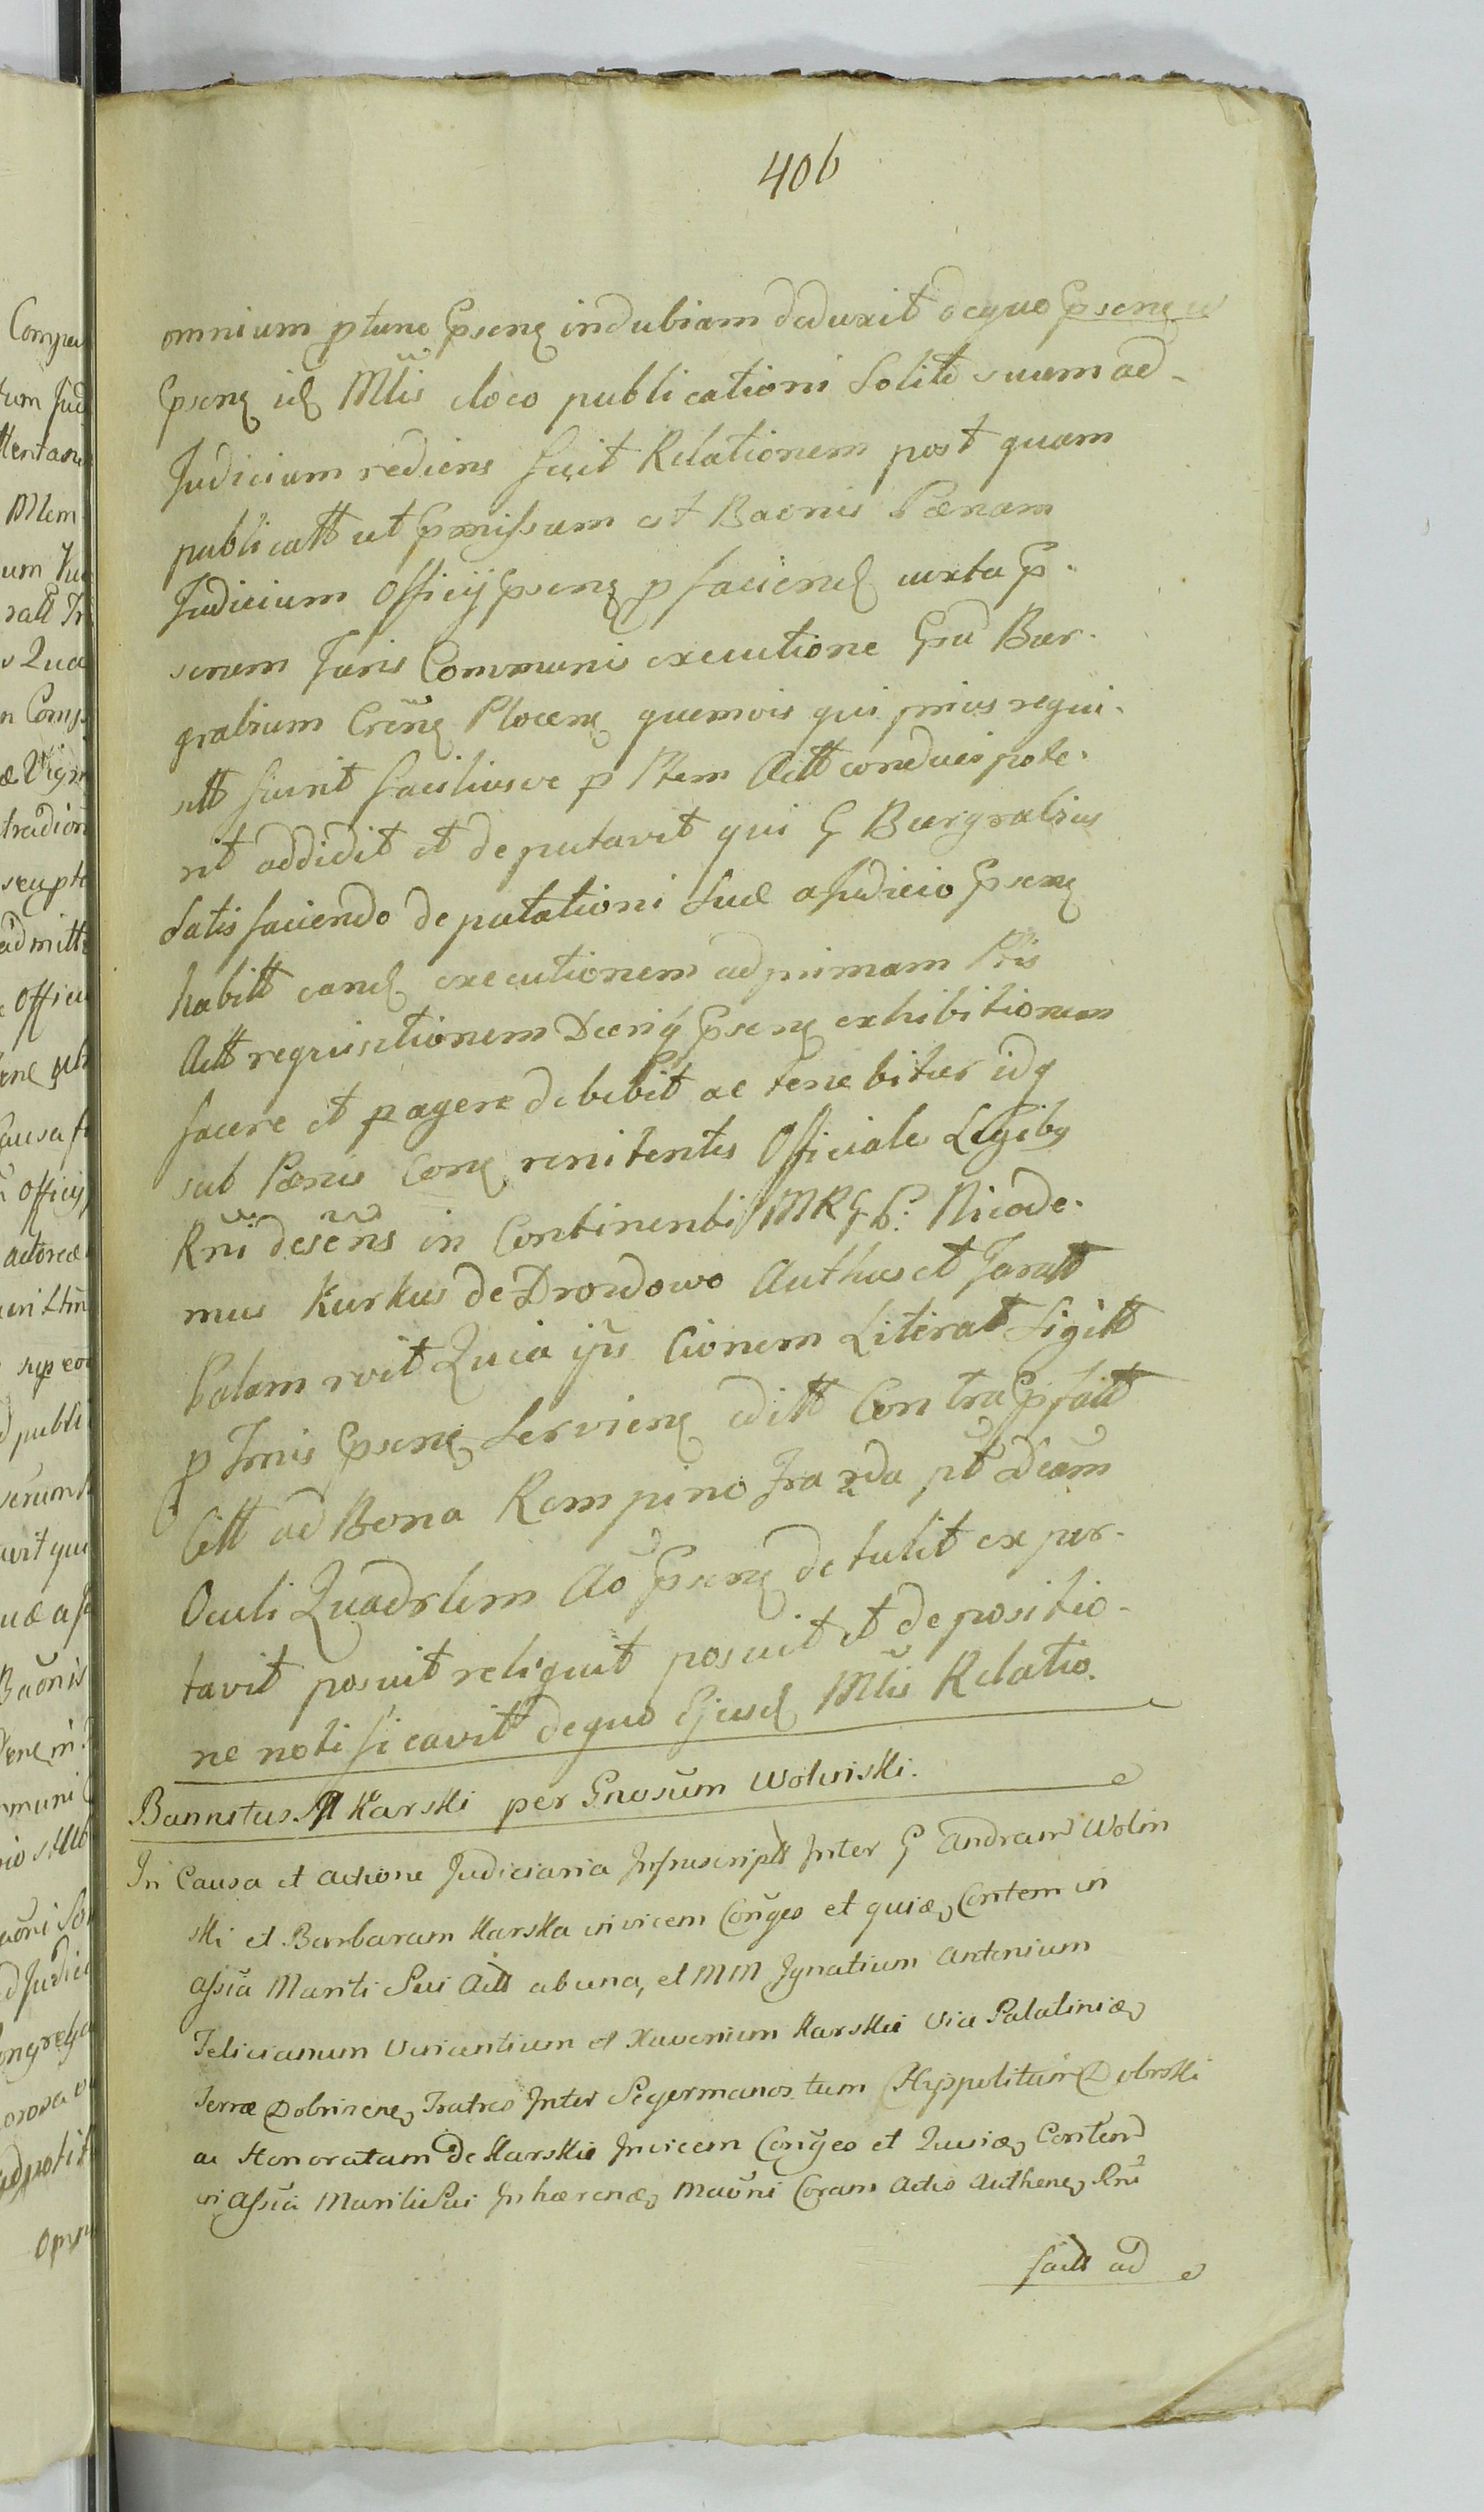 406
omnium ptunc Epsenę indubiam deduxit dequo Epsenę
Epsenę idę Mlis eloco publicationi Solito suum ad-
Judicium rediens fecit Relationem post quam
publicatt ut Epmissum est Baonis Pænam
Judicium Officij Epsenę p faciendę iuxta Ep-
scrum Juris Communis executione Gsū Bur-
grabium Crēnę Plocenę quemvis qui prius requi-
sitt fuerit faciliusve p Ptem Actt conduci pote-
rit addidit et deputavit qui G Burgrabius
Satisfaciendo deputationi Suæ aJudicio Epsenę
habitt eandę executionem adprimam Ptis
Actt requisitionem Decriq Epsenę exhibitionem
facere et pagere debebit ac tenebitur idq
sub Pænis Conę renitentes Officiales Legibq
Rni desēns in Continenti MRG P: Nicode-
mus Kurkus de Drozdowo Authus et Juratt
Palam rvit Quia ijs Cionem Literat Sigitt
p Jmis Epsenę Servienę editt Contra Epfatt
Citt ad Bona Rempino Fraxda pt Dcām
Oculi Quadrlem Aō Epsenę detulit expor-
tavit posuit reliquit posuit et depositio-
ne notificavit dequo Ejusdę Mlis Relatio.
Bannitus M Karski per Gnosūm Wolinski.
In Causa et actione Judiciaria Infrascriptt Inter G Andream Wolin
ski et Barbaram Karska invicem Coñges et quiæ, Contem in
assiā Mariti Sui Actt abuna, et MM Ignatium Antonium
Felicianum Vincentium et Xaverium Karskie Via Palatiniæ,
Terræ Dobrinenę, Fratres Inter Segermanos tum Hyppolitum Dobrski
ac Honoratam De Karskie Invicem Coñges et Quiæ, Contem
in Assiā Mariti Sui Inhærenę, Maōni Coram Actis Authenę, Rnī
factt ad